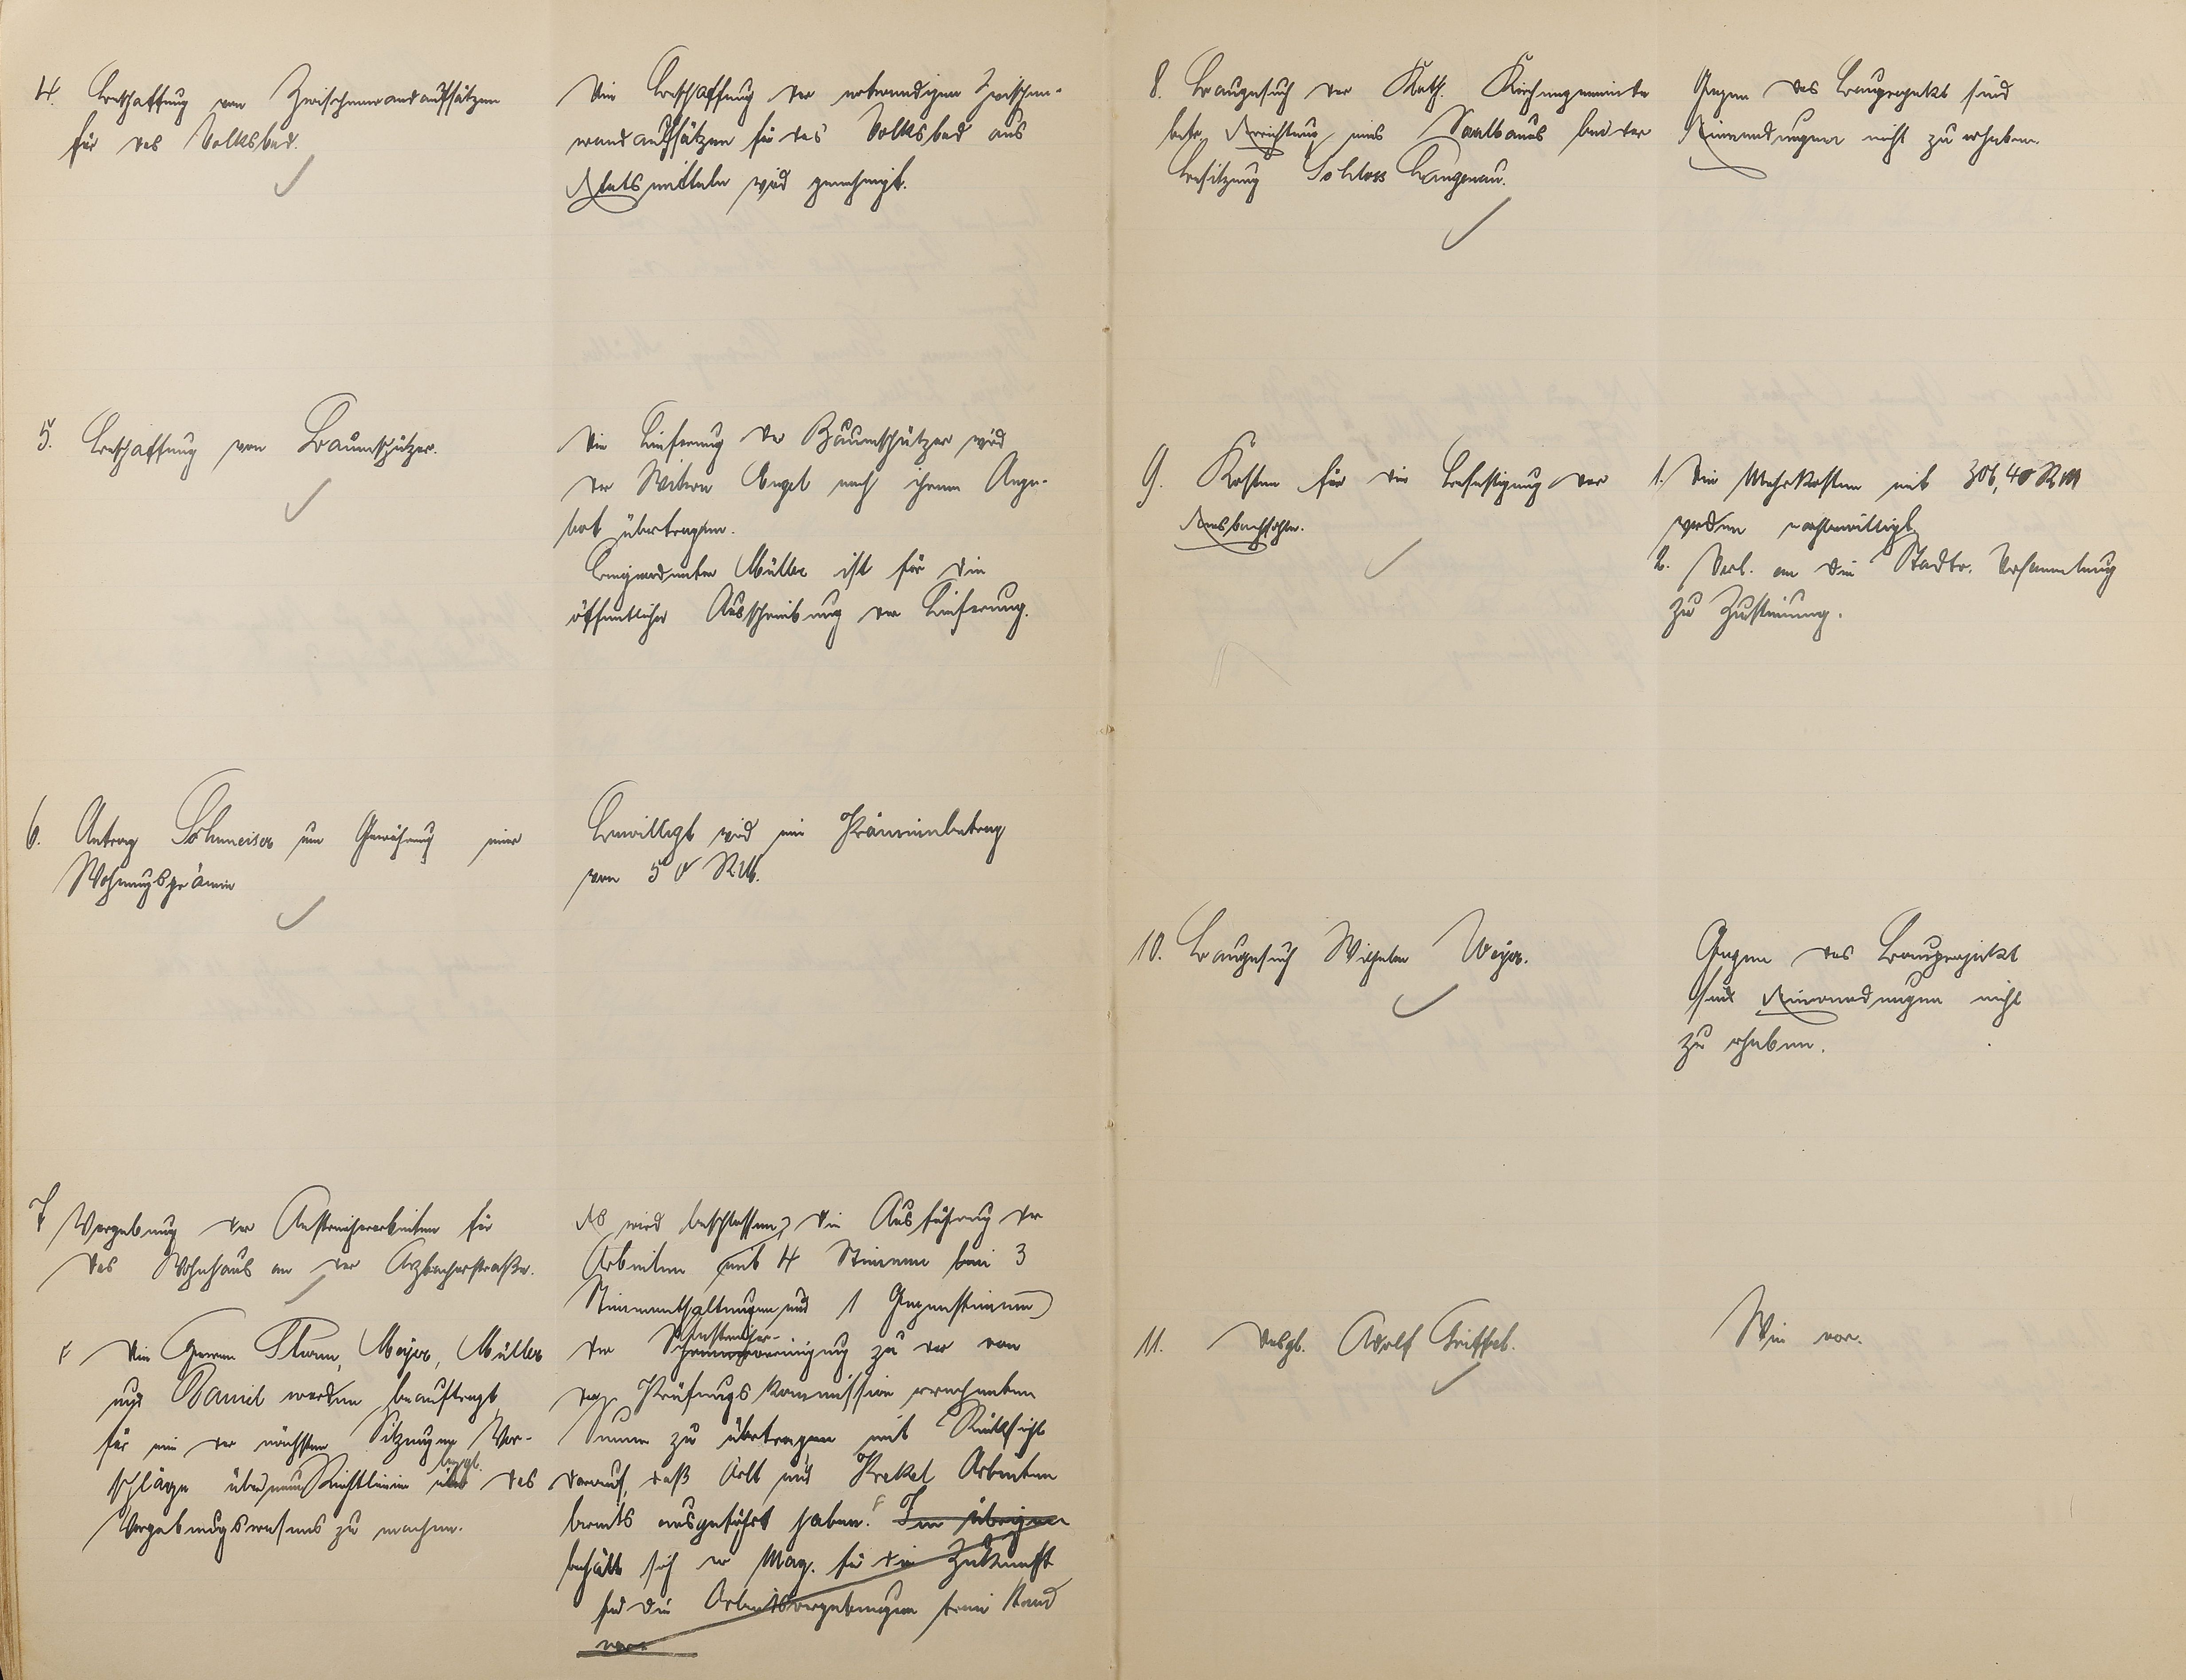 4. Beschaffung von Zwischenwandaufsätzen
für das Volksbad.
Die Beschaffung der notwendigen Zwischen-
wandaufsätzen für das Volksbad aus
Etatsmitteln wird genehmigt.
5. Beschaffung von Baumschützer.
Die Lieferung der Baumschützer wird
der Witwe Engel nach ihrem Ange-
bot übertragen.
Beigeordneter Müller ist für die
öffentliche Ausschreibung der Lieferung.
6. Antrag Schmeiser um Gewährung einer
Wohnungsprämie
Bewilligt wird ein Prämienbetrag
von 50 RM.
7. Vergebung der Anstreicherarbeiten für
das Wohnhaus an der Arzbacherstraße.
Es wird beschlossen, die Ausführung der
Arbeiten (mit 4 Stimmen bei 3
Stimmenthaltungen und 1 Gegenstimme)
der Anstreicher-
vereinigung zu der von
der Prüfungskommission errechneten
Summe zu übertragen mit Rücksicht
darauf, daß Arlt und Krekel Arbeiten
bereits ausgeführt haben. F Im übrigen
behält sich der Mag. für die Zukunft
für die Arbeitsvergebungen freie Hand
vor.
F Die Herren Thum, Meyer, Müller
und Bamil werden beauftragt,
für eine der nächsten Sitzungen Vor-
schläge über neue Richtlinien bezgl. das
Vergebungswesens zu machen.
8. Baugesuch der Kath. Kirchengemeinde
betr. Errichtung eines Saalbaus bei der
Besitzung Schloss Langenau.
Gegen das Bauprojekt sind
Einwendungen nicht zu erheben.
9. Kosten für die Befestigung der
Emsbachsohle.
1. Die Mehrkosten mit 306,40 RM
werden nachbewilligt
2. Vorl. an die Stadtv. Versammlung
zur Zustimmung.
10. Baugesuch Wilhelm Weyer.
Gegen das Bauprojekt
sind Einwendungen nicht
zu erheben.
11. desgl. Adolf Griffel.
Wie vor.